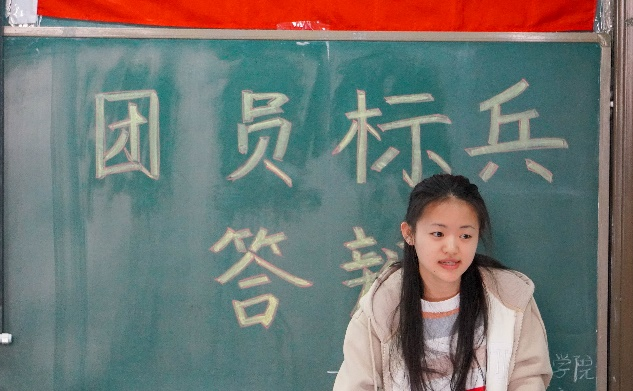 团员标兵
答辩
学院